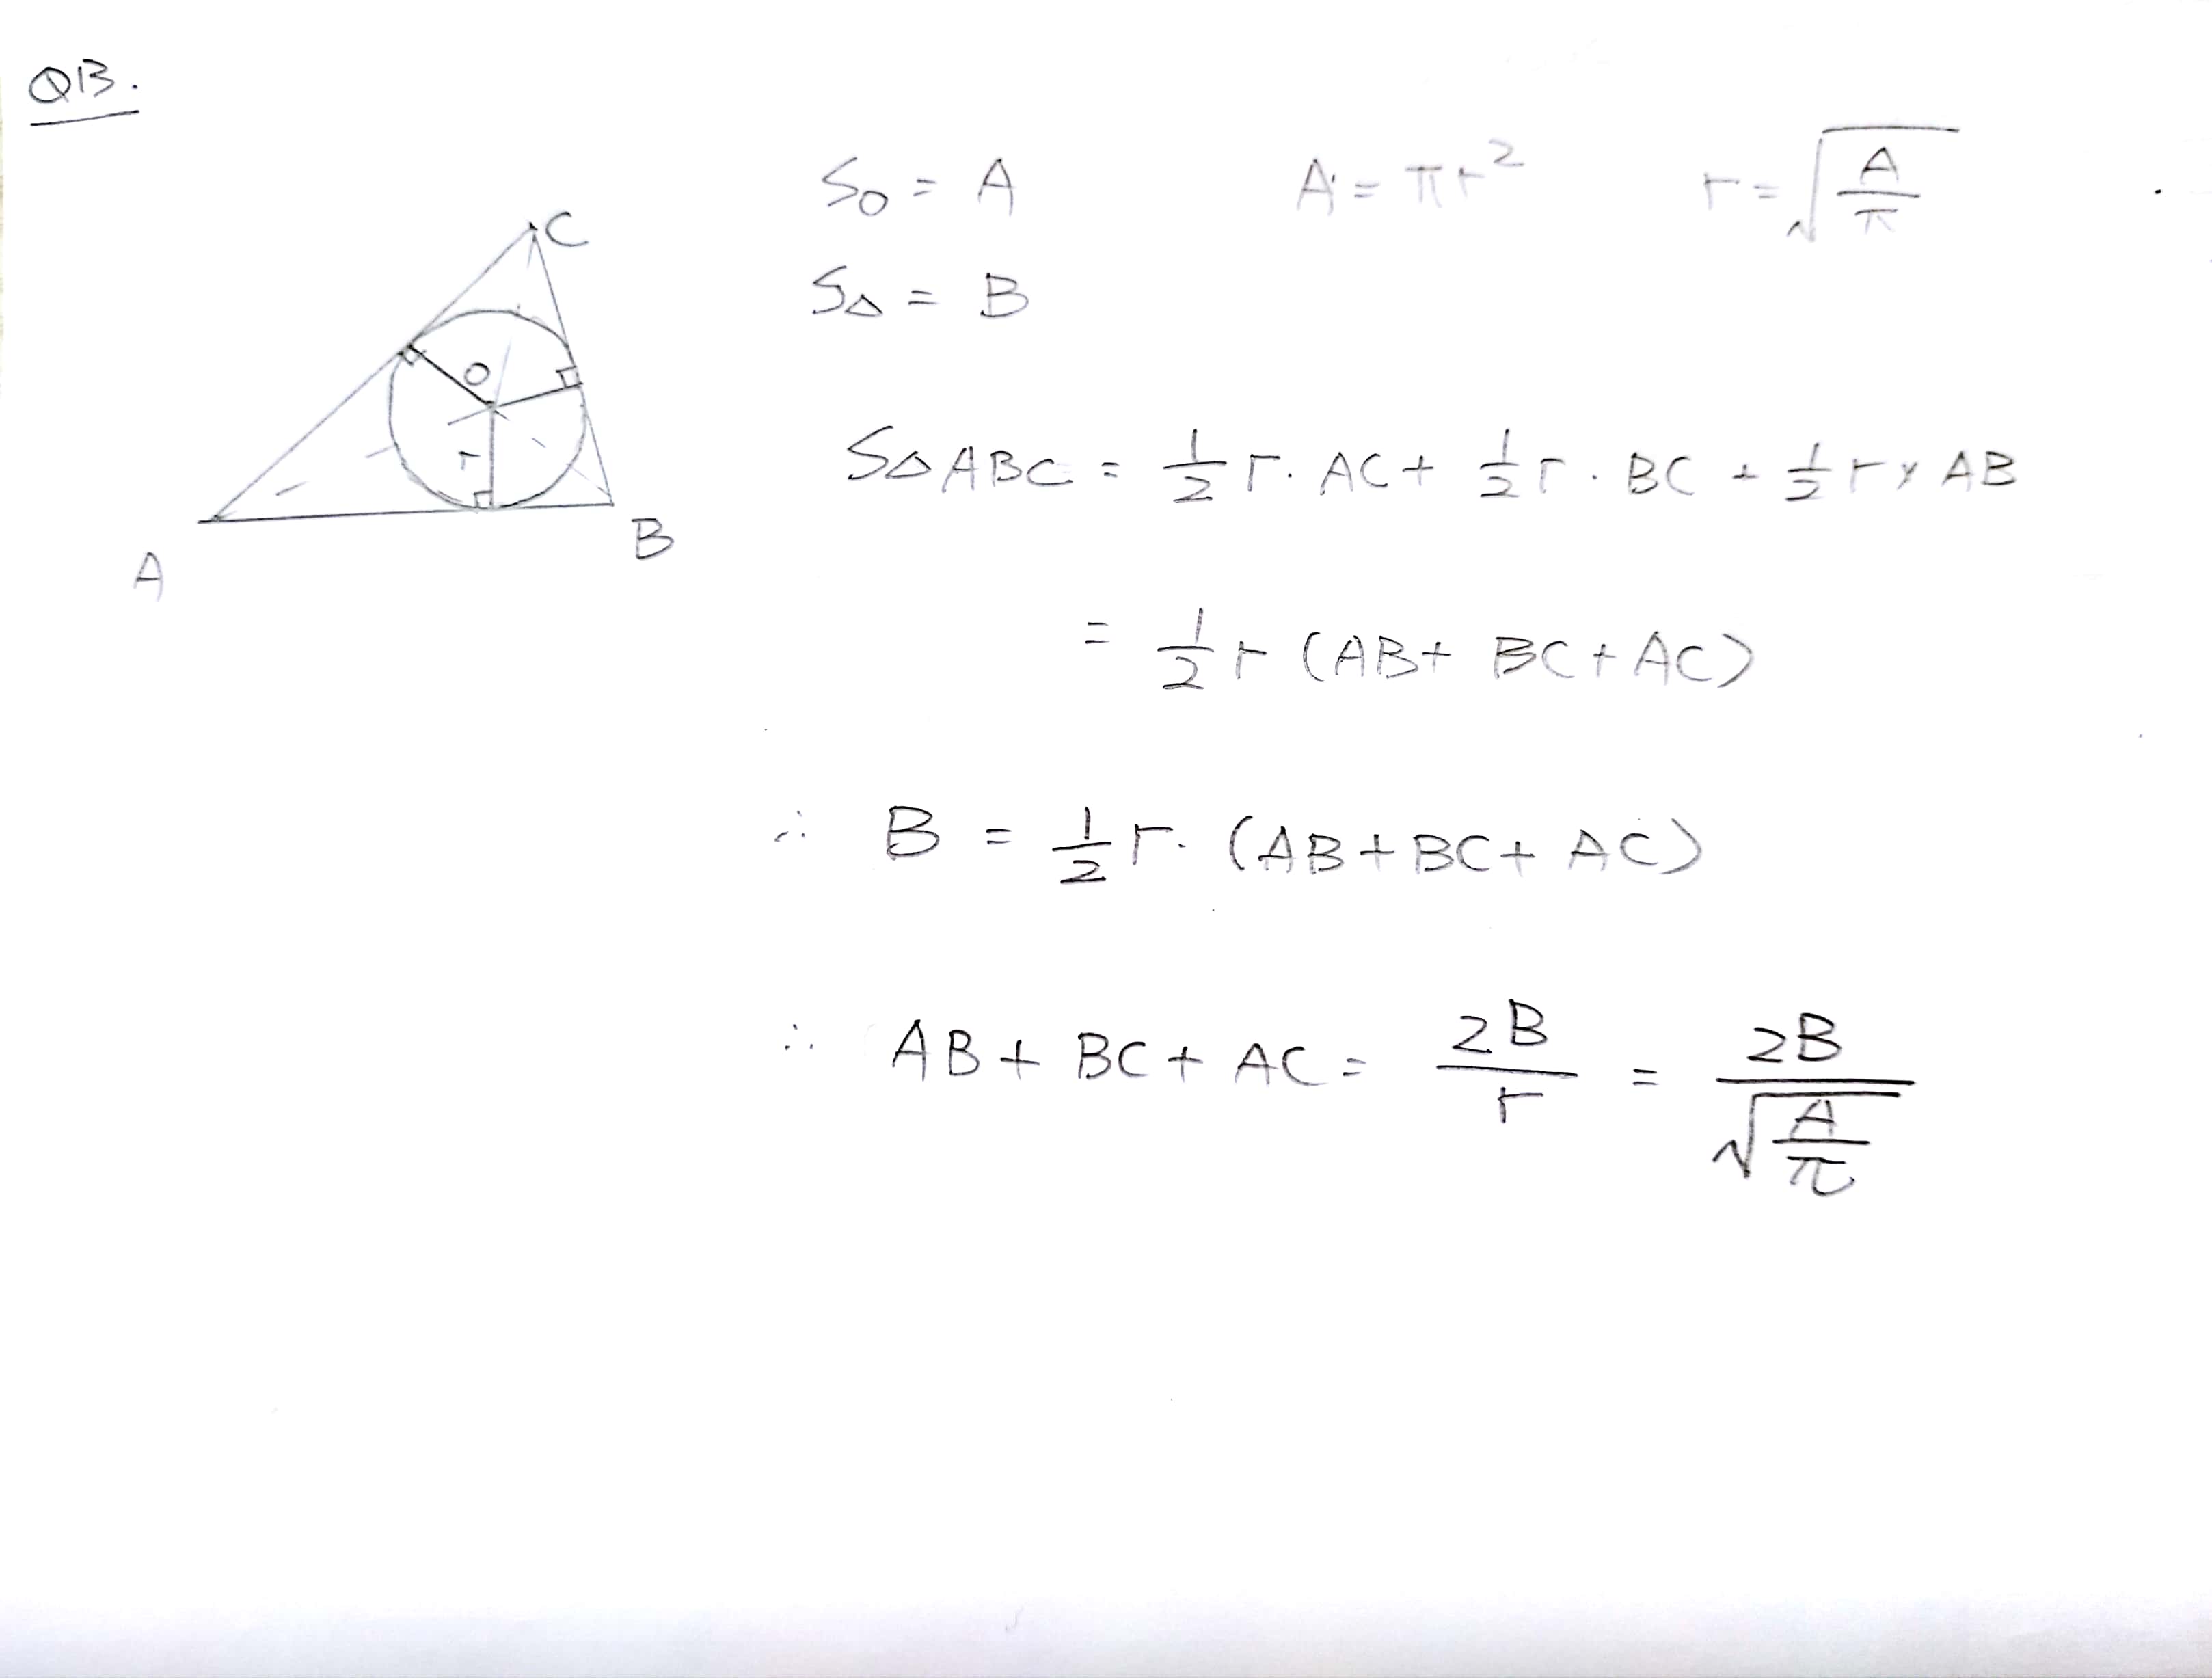 QB.
S○ = A    A = πr²    r = √(A/π)
S△ = B
C
O
r
A
B
S△ABC = 1/2 r · AC + 1/2 r · BC + 1/2 r × AB
= 1/2 r (AB + BC + AC)
∴ B = 1/2 r · (AB + BC + AC)
∴ AB + BC + AC = 2B/r = 2B/√(A/π)